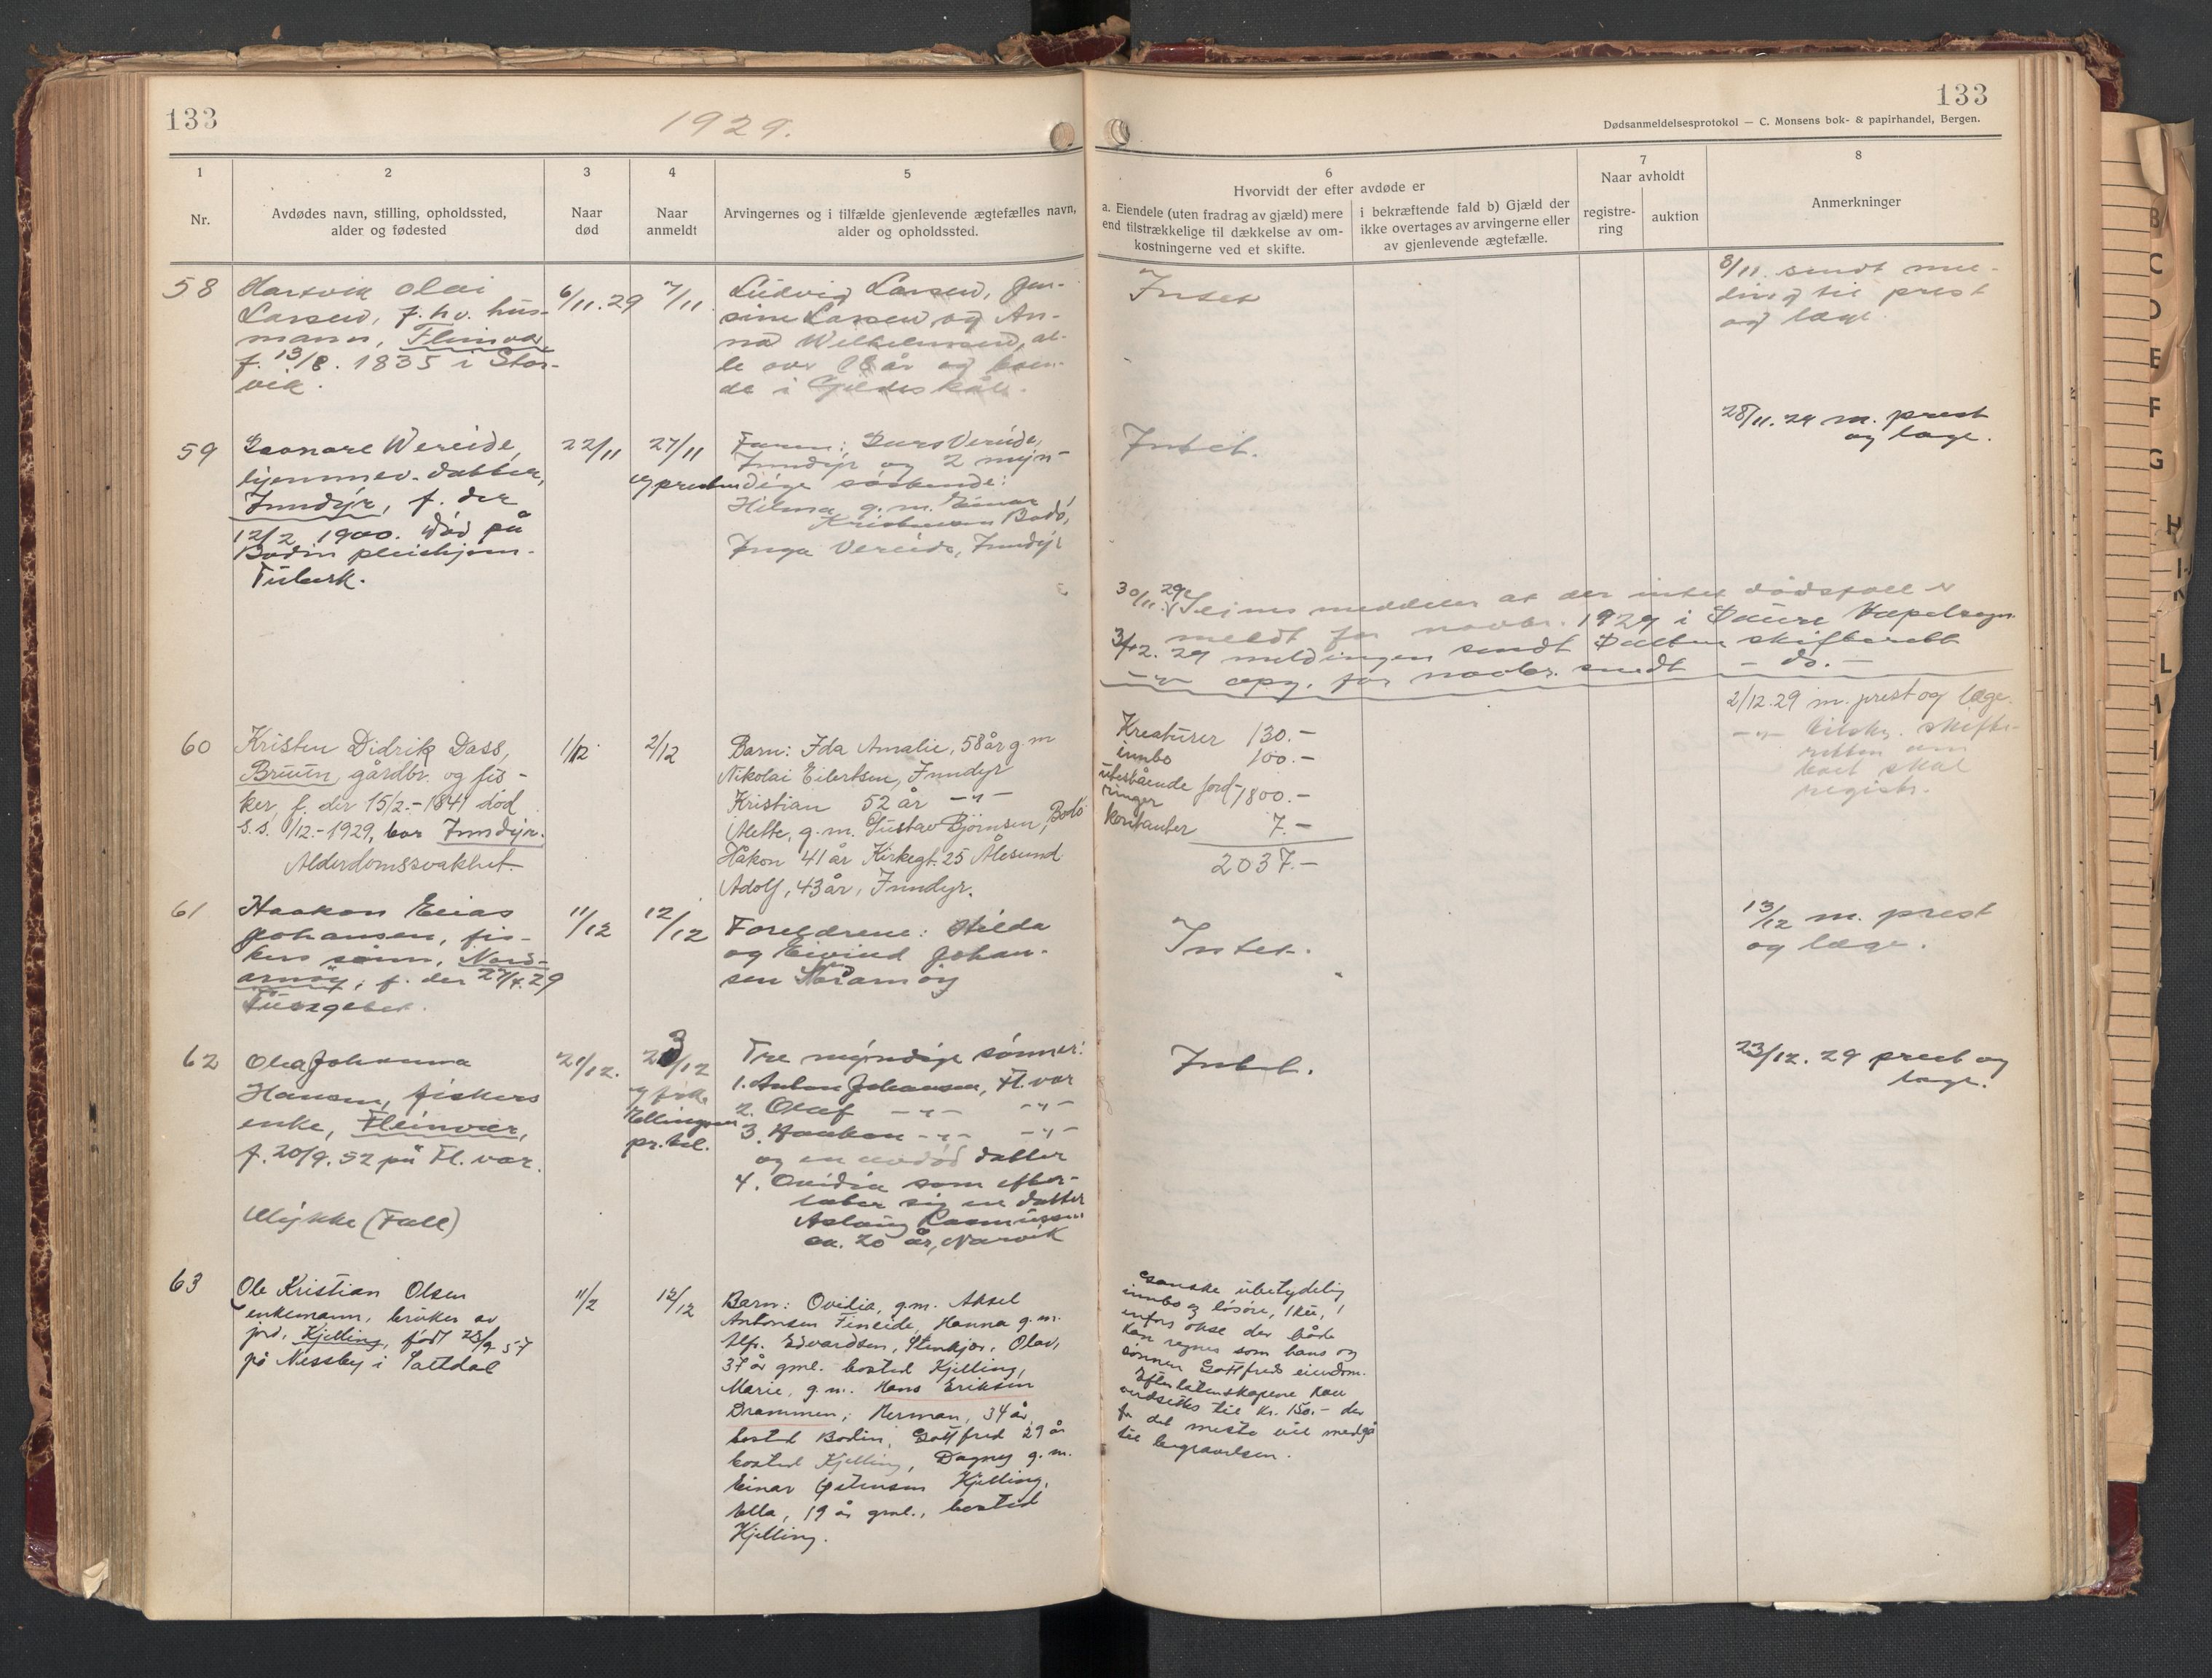 133
1929.
133
Dødsanmeldelsesprotokol — C. Monsens bok- & papirhandel, Bergen.
1
2
3
4
5
6
7
8
Nr.
Avdødes navn, stilling, opholdssted,
alder og fødested
Naar
død
Naar
anmeldt
Arvingernes og i tilfælde gjenlevende ægtefælles navn,
alder og opholdssted.
Hvorvidt der efter avdøde er
a. Eiendele (uten fradrag av gjæld) mere
end tilstrækkelige til dækkelse av om-
kostningerne ved et skifte.
i bekræftende fald b) Gjæld der
ikke overtages av arvingerne eller
av gjenlevende ægtefælle.
Naar avholdt
registre-
ring
auktion
Anmerkninger
58
Hartvik Olai
Larsen, f. hv. hus-
mann, Fleinvær
f. 13/8. 1835 i Stor-
vik.
6/11.29
7/11
Ludvig Larsen, Jen-
sine Larsen og An-
na Wilhelmsen, al-
le over 18 år og boen-
de i Gildeskål.
Intet
8/11. sendt mel-
ding til prest
og læge.
59
Leonare Wereide,
hjemmev. datter,
Inndyr, f. der
12/2 1900. Død på
Bodin pleiehjem.
Tuberk.
22/11
27/11
og prest
Faren: Lars Vereide,
Inndyr og 2 myn-
dige søskende:
Hilma g. m. Einar
Kristensen Bodø,
Inga Vereide, Inndyr
Intet.
28/11.29 m. prest
og læge.
30/11.29 meddeler at der intet dødsfall er
meldt for novbr. 1929 i Saura Kapelsogn.
3/12.29 meldingen sendt Salten skifterett
-"- opg. for novbr. sendt - do. -
60
Kristen Didrik Dass,
Bruun, gårdbr. og fis-
ker, f. der 15/2.-1841 død
s.s. 1/12.-1929, bor Inndyr.
Alderdomssvakhet.
1/12
2/12
Barn: Ida Amalie, 58 år g. m
Nikolai Eilertsen, Inndyr
Kristian 52 år -"-
Mette, g. m. Gustav Bjørnsen, Bodø
Håkon 41 år Kirkegt. 25 Ålesund
Adolf, 43 år, Inndyr.
Kreaturer 130.-
innbo 100.-
utestående ford-
ringer 1800.-
kontanter 7.-
2037.-
2/12.29 m. prest og læge.
-"- tilskr. skifte-
retten om
boet skal
registr.
61
Haakon Elias
Johansen, fis-
kers sønn, Nord-
arnøy, f. der 27/4.29
11/12
12/12
Foreldrene: Hilda
og Eivind Johan-
sen Norarnøy
Intet.
13/12 m. prest
og læge.
62
Olea Johanna
Hansen, fiskers
enke, Fleinvær,
f. 20/9.52 på Fl. vær.
Ulykke (Fall)
21/12.
23/12
Ellingsen
pr. tel.
Tre myndige sønner:
1. Anton Johansen, Fl. vær
2. Olaf -"- -"-
3. Haakon -"- -"-
og en avdød datter
4. Ovidia som efter-
later sig en datter
Aslaug Rasmussen
ca. 20 år, Narvik
Intet.
23/12.29 prest og
læge.
63
Ole Kristian Olsen
enkemann, bruker av
jord, Kjelling, født 23/9 57
på Nessby i Saltdal
11/2
12/12
Barn: Ovidia, g.m. Aksel
Antonsen Fineide, Hanna g. m.
Alf. Edvardsen, Stenkjær, Olav,
37 år gml. bosted Kjelling,
Marie, g. m. Hans Eriksen
Drammen, Herman, 34 år
bosted Bodin, Gottfred 29 år
bosted Kjelling, Dagny g. m.
Einar Petersen Kjelling,
Ella, 19 år gml., bosted
Kjelling.
Ganske ubetydelig
innbo og løsøre, 1 ku, 1
okse der både
kan regnes som hans og
sønnen Gottfreds eiendom.
Efterlatenskapene kan
verdsettes til kr. 150.- der
for det meste vil medgå
til begravelsen.
B
C
D
E
F
G
H
I
K
L